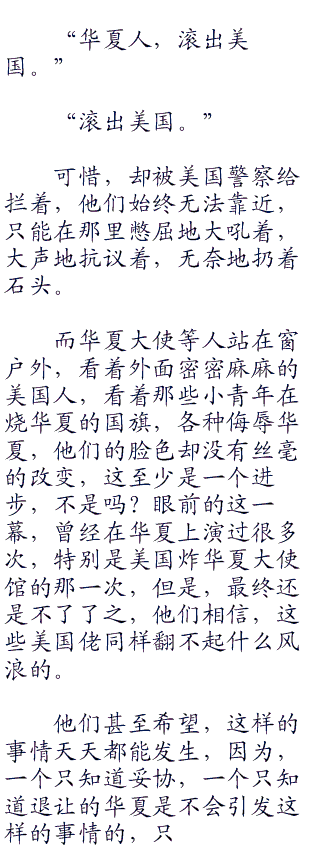 “华夏人，滚出美
国。”
“滚出美国。”
可惜，却被美国警察给
拦着，他们始终无法靠近，
只能在那里憋屈地大吼着，
大声地抗议着，无奈地扔着
石头。
而华夏大使等人站在窗
户外，看着外面密密麻麻的
美国人，看着那些小青年在
烧华夏的国旗，各种侮辱华
夏，他们的脸色却没有丝毫
的改变，这至少是一个进
步，不是吗？眼前的这一
幕，曾经在华夏上演过很多
次，特别是美国炸华夏大使
馆的那一次，但是，最终还
是不了了之，他们相信，这
些美国佬同样翻不起什么风
浪的。
他们甚至希望，这样的
事情天天都能发生，因为，
一个只知道妥协，一个只知
道退让的华夏是不会引发这
样的事情的，只